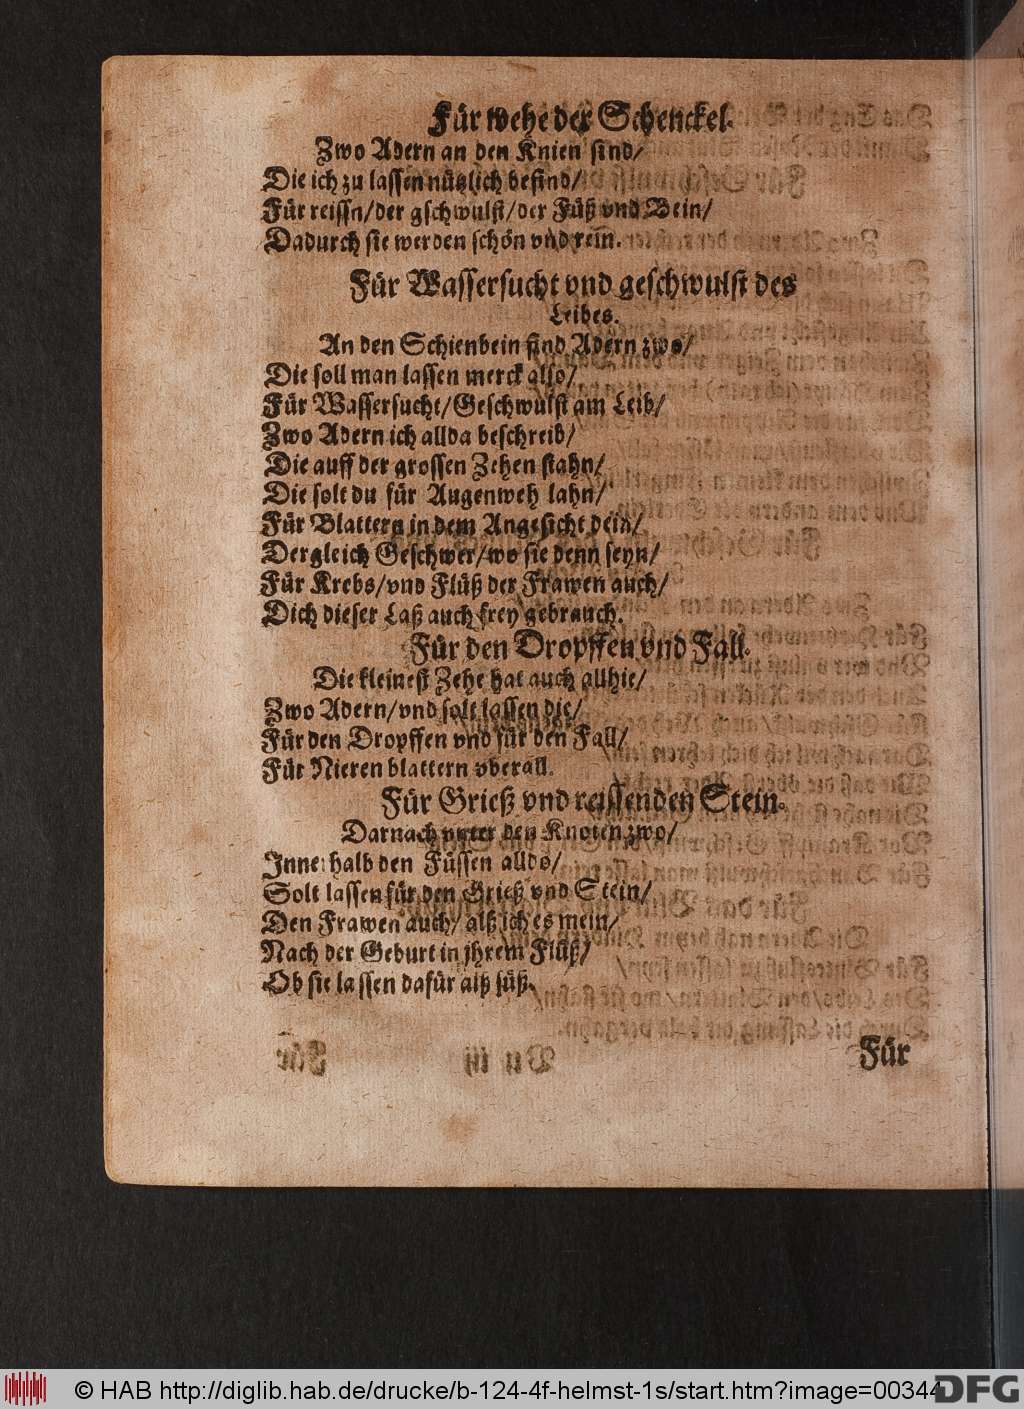 Für wehe der Schenckel.
Zwo Adern an den Knien sind/
Die ich zu lassen nützlich befind/
Für reissn/der gschwulst/der Füß vnd Bein/
Dadurch sie werden schön vnd rein.
Für Wassersucht vnd geschwulst des
Leibes.
An den Schienbein sind Adern zwo/
Die soll man lassen merck also/
Für Wassersucht/Geschwulst am Leib/
Zwo Adern ich allda beschreib/
Die auff der grossen Zehen stahn/
Die solt du für Augenweh lahn/
Für Blattern in dem Angesicht dein/
Dergleich Geschwer/wo sie denn seyn/
Für Krebs/vnd Flüß der Frawen auch/
Dich dieser Laß auch frey gebrauch.
Für den Dropffen vnd Fall.
Die kleinest Zehe hat auch allhie/
Zwo Adern/vnd solt lassen die/
Für den Dropffen vnd für den Fall/
Für Nieren blattern vberall.
Für Grieß vnd reissenden Stein.
Darnach vnter den Knoten zwo/
Innerhalb den Füssen alldo/
Solt lassen für den Grieß vnd Stein/
Den Frawen auch/ alß ich es mein/
Nach der Geburt in jhrem Flüß/
Ob sie lassen dafür alß süß.
Für
© HAB http://diglib.hab.de/drucke/b-124-4f-helmst-1s/start.htm?image=00344
DFG